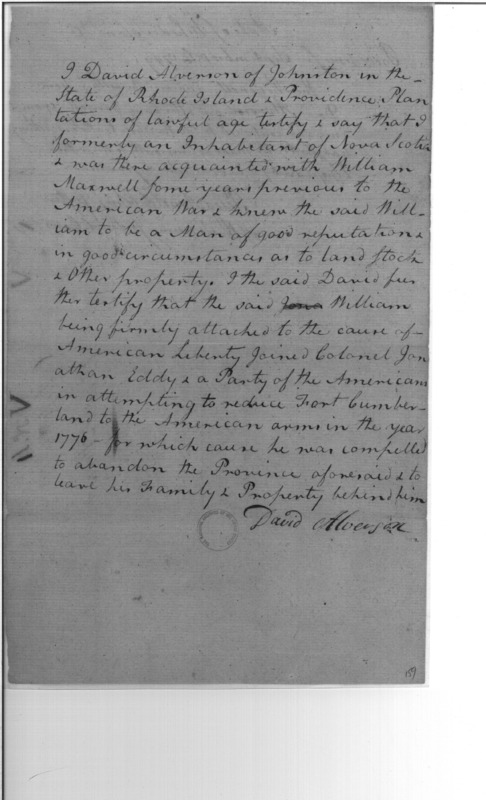 I David Alverson of Johnston in the
State of Rhode Island & Providence Plan
tations of lawful age testify & say that I
formerly an Inhabetant of Nova Scotia
& was there acquainted with William
Maxwell some years previous to the
American War & knew the said Will-
iam to be a Man of good reputation &
in good circumstances as to land stock
& Other property. I the said David fur
ther testify that the said Jona William
being firmly attached to the cause of
American Liberty Joined Colonel Jon
athan Eddy & a Party of the Americans
in attempting to reduce Fort Cumber-
land to the American arms in the year
1776 - for which cause he was compelled
to abandon the Province aforesaid & to
leave his Family & Property behind him
David Alverson
159